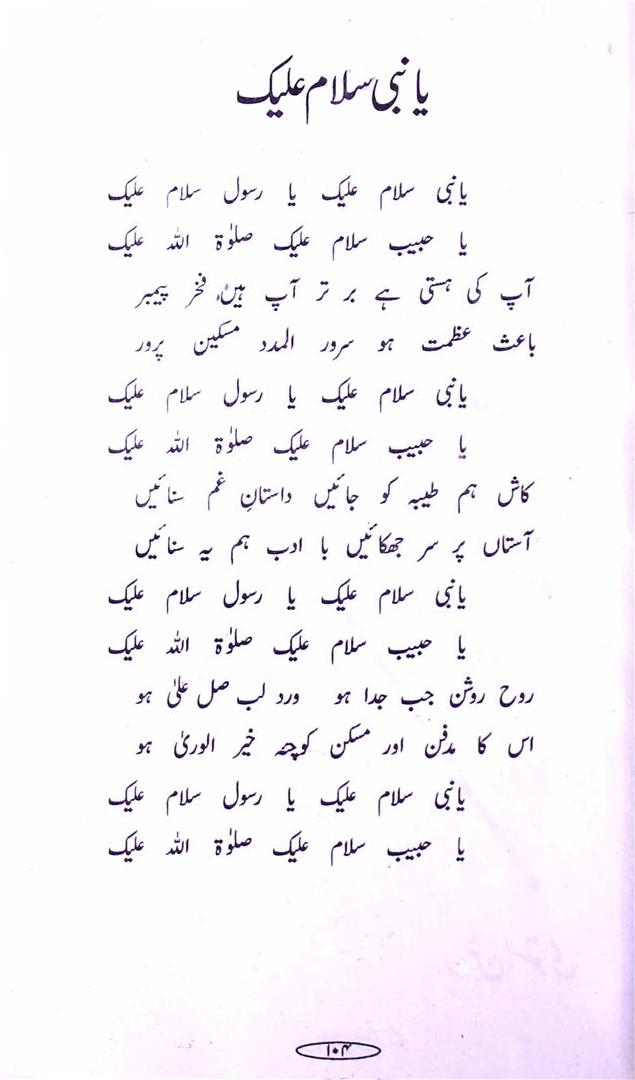 یا نبی سلام علیک
یا نبی سلام علیک یا رسول سلام علیک
یا حبیب سلام علیک صلوٰۃ اللہ علیک
آپ کی ہستی ہے بر تر آپ ہیں فخر پیمبر
باعث عظمت ہو سرور المدد مسکین پرور
یا نبی سلام علیک یا رسول سلام علیک
یا حبیب سلام علیک صلوٰۃ اللہ علیک
کاش ہم طیبہ کو جائیں داستانِ غم سنائیں
آستاں پر سر جھکائیں با ادب ہم یہ سنائیں
یا نبی سلام علیک یا رسول سلام علیک
یا حبیب سلام علیک صلوٰۃ اللہ علیک
روح روشن جب جدا ہو ورد لب صل علیٰ ہو
اس کا مدفن اور مسکن کوچۂ خیر الوریٰ ہو
یا نبی سلام علیک یا رسول سلام علیک
یا حبیب سلام علیک صلوٰۃ اللہ علیک
۱۰۴